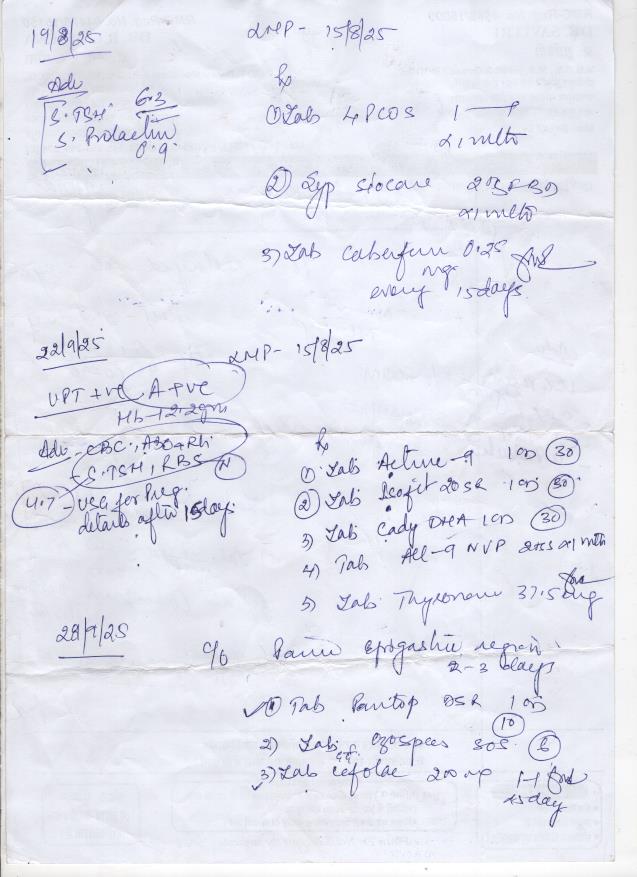 19/8/25
LMP- 15/8/25
Adv
S. TSH 6.3
S. Prolactin
0.9.
Rx
1) Tab 4PCOS 1
x1 mth
2) Syp 2 BD
x1 mth
3) Tab 0.25
mg
every 15 days.
22/9/25
LMP- 15/8/25
UPT +ve A +ve
Hb-12.2gm
Adv - CBC, ABO+Rh
- S. TSH, RBS N
4.7 - USG for Preg.
details after 15 day.
Rx
1) Tab Active-9 1OD 30
2) Tab 20SR 1OD 30
3) Tab Cady DHA 1OD 30
4) Tab All-9 NVP x1 mth
5) Tab Thyronorm 37.5mg
29/9/25
c/o Pain epigastric region.
2-3 days
1) Tab Pantop DSR 1OD
10
2) Tab SOS. 6
3) Tab 200 mg 1-1
x5 day